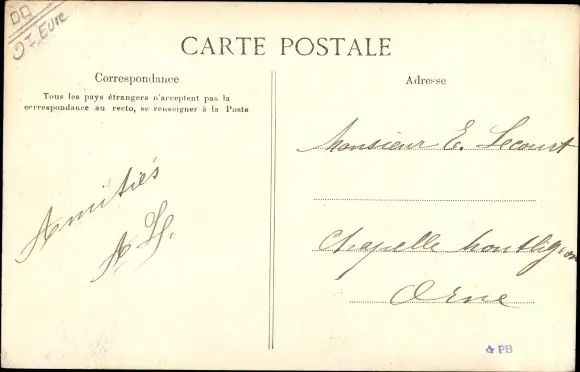 OI Eure
CARTE POSTALE
Correspondance
Tous les pays étrangers n'acceptent pas la
correspondance au recto, se renseigner à la Poste
Amitiés
A H.
Adresse
Monsieur E. Lecourt
Chapelle Montligeon
Orne
PB